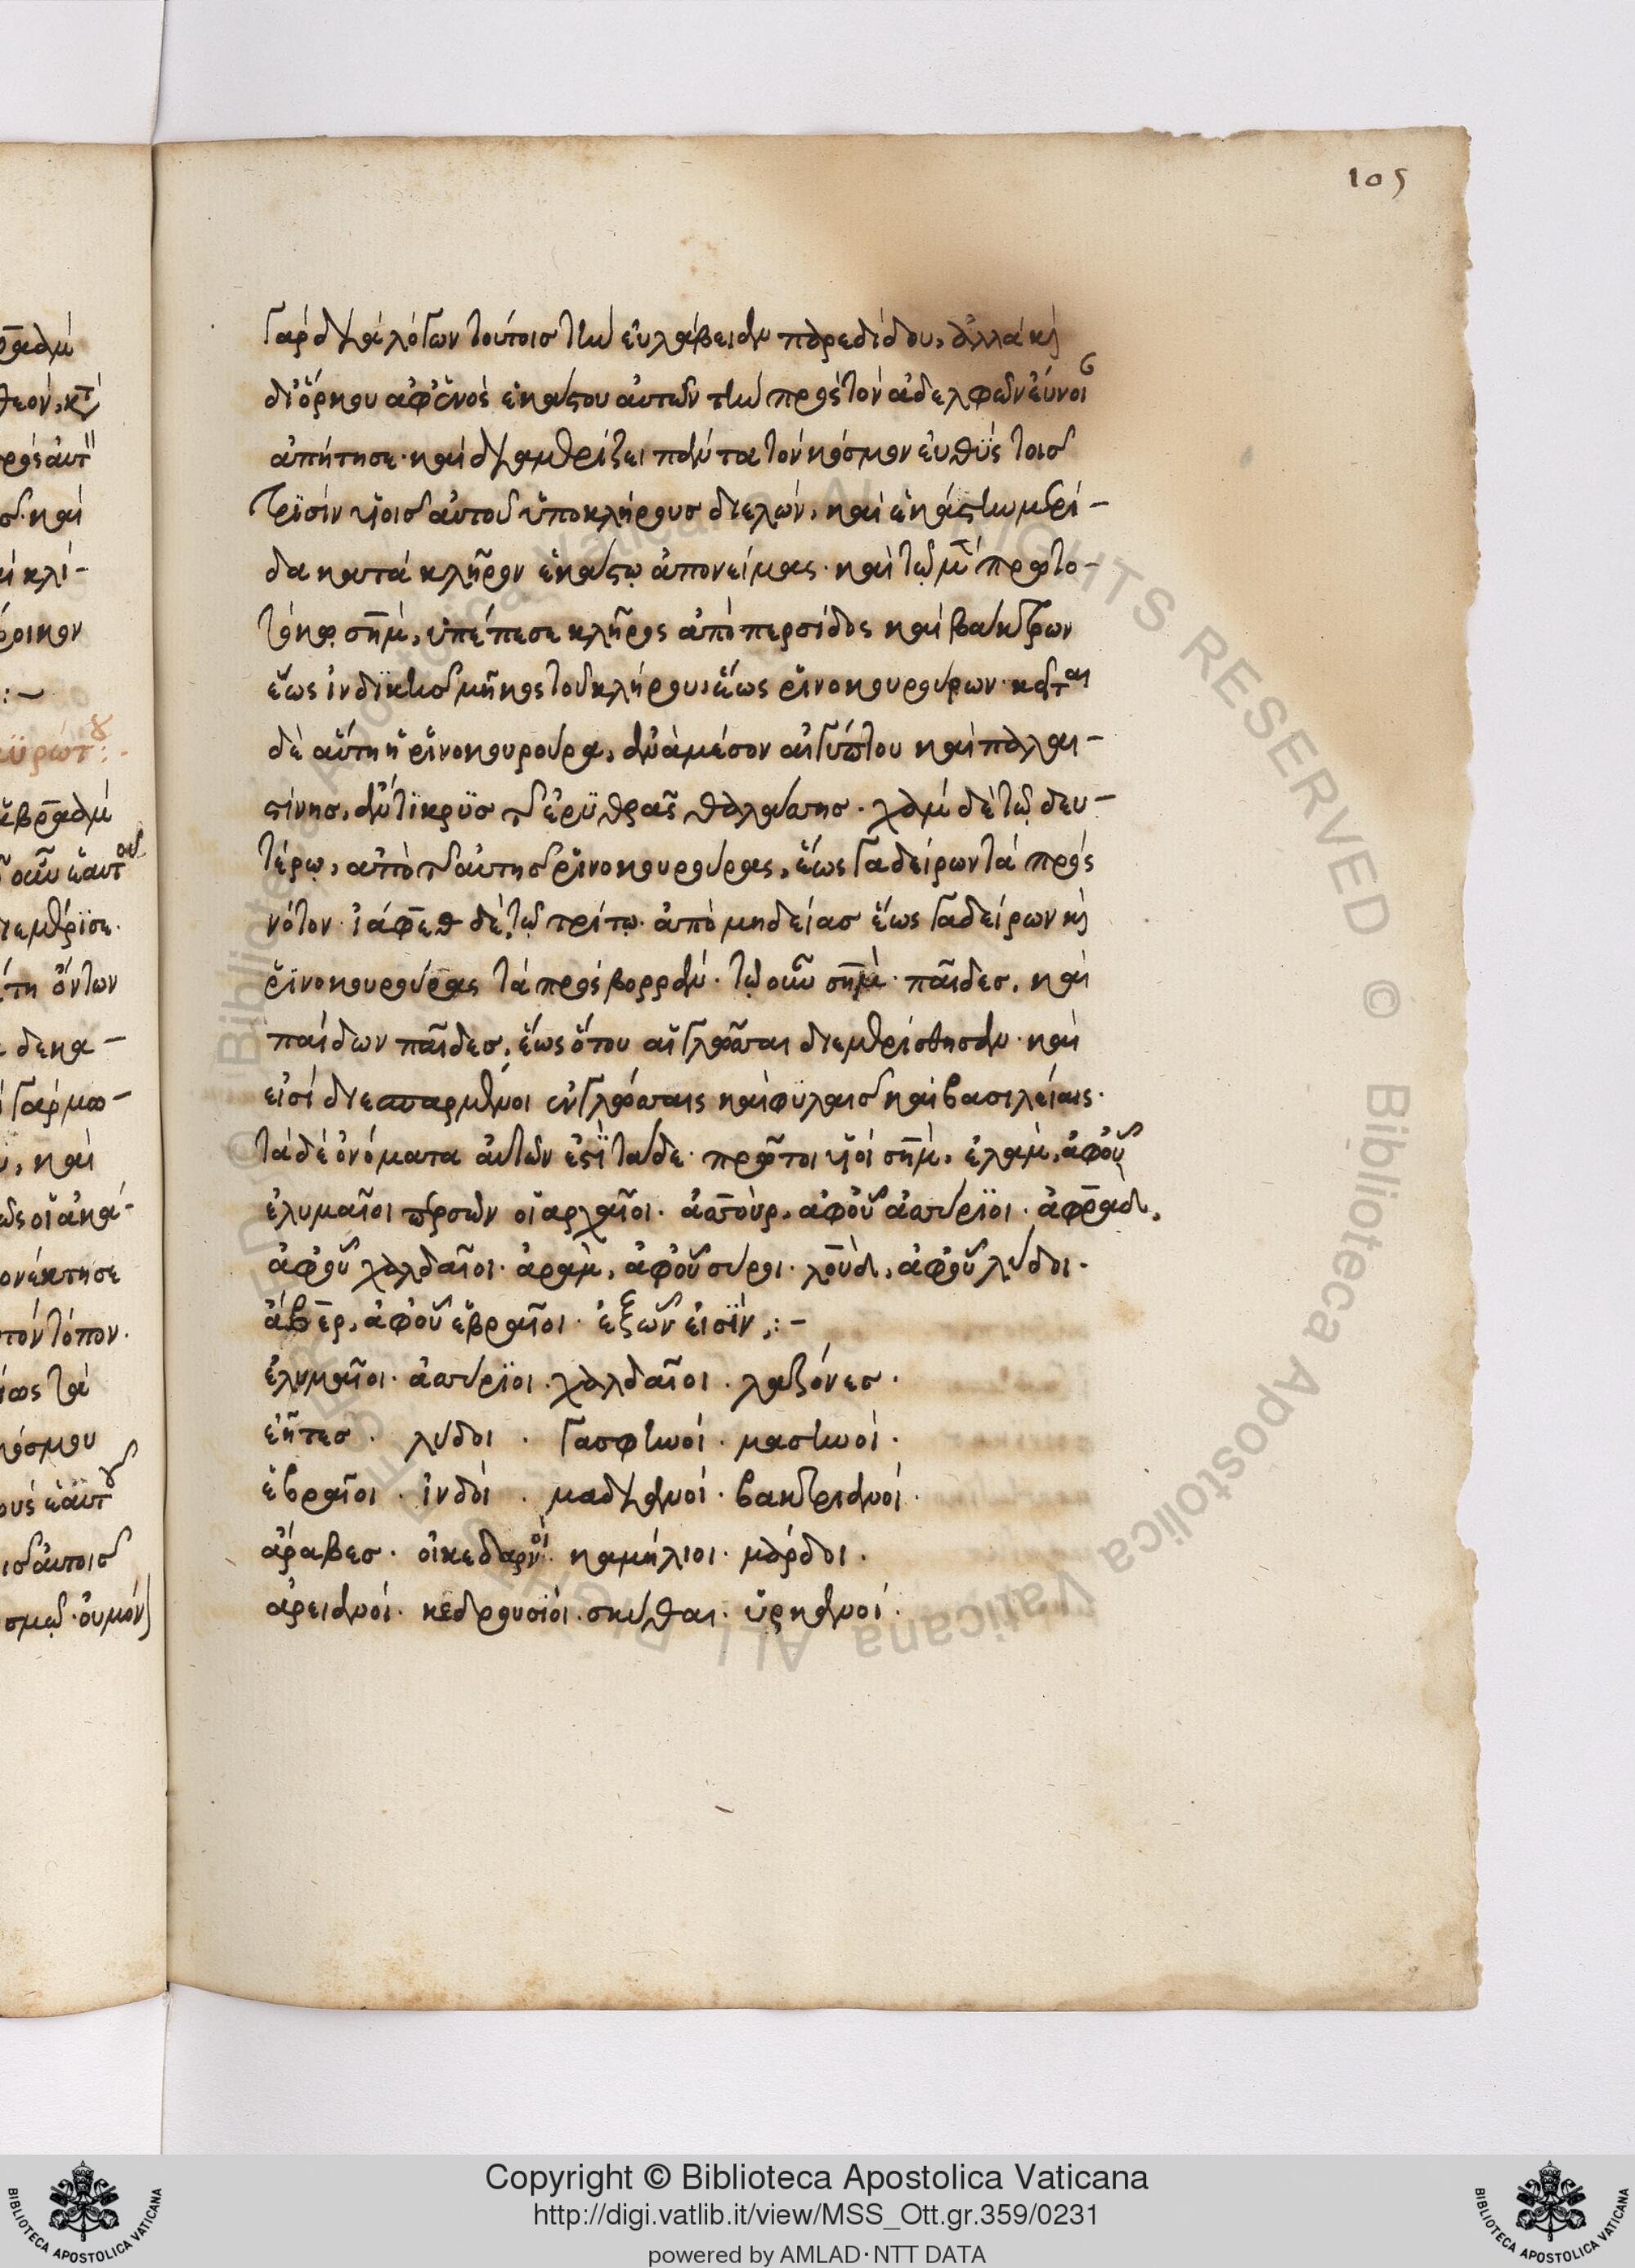 105
γὰρ διὰ λόγων τούτοις τὴν εὐλάβειαν παρεδίδου, ἀλλὰ κ(αὶ)
δι' ὅρκου ἀφ' ἑνὸς ἑκάστου αὐτῶν τὴν πρὸς τὸν ἀδελφὸν εὔνοι
ἀπήτησε· καὶ διαμερίζει πάντα τὸν κόσμον εὐθὺς τοῖς
τρϊσὶν υἱοῖς αὐτοῦ ὑπὸ κλήρους διελών, καὶ ἑκάστην μερί-
δα κατὰ κλῆρον ἑκάστῳ ἀπονείμας· καὶ τῷ μὲν πρωτο-
τόκῳ σὴμ, ὑπέπεσε κλῆρος ἀπὸ περσίδος καὶ βάκτρων
ἕως ἰνδϊκῆς μῆκος τοῦ κλήρου, ἕως ῥινοκουρούρων· κεῖται
δὲ αὕτη ἡ ῥινοκουρούρα, ἀνάμεσον αἰγύπτου καὶ παλαι-
στίνης, ἀντϊκρϋς τῆς ἐρϋθρᾶς θαλάσσης. χὰμ δὲ τῷ δευ-
τέρῳ, ἀπὸ τῆς αὐτῆς ῥινοκουρούρας, ἕως γαδείρων τὰ πρὸς
νότον· ἰάφεθ δὲ τῷ τρίτῳ· ἀπὸ μηδείας ἕως γαδείρων κ(αὶ)
ῥινοκουρούρας τὰ πρὸς βορρᾶν· τῷ οὖν σὴμ· παῖδες, καὶ
παίδων παῖδες, ἕως ὅτου αἱ γλῶσσαι διεμερίσθησαν· καὶ
εἰσὶ διεσπαρμένοι ἐν γλώσσαις καὶ φϋλαῖς καὶ βασιλείαις·
τὰ δὲ ὀνόματα αὐτῶν ἐστϊ τάδε· πρῶτοι υἱοὶ σὴμ, ἐλὰμ, ἀφ' οὗ
ἐλυμαῖοι περσῶν οἱ ἀρχαῖοι· ἀσσοὺρ, ἀφ' οὗ ἀσσύρϊοι· ἀρφαξὰδ,
ἀφ' οὗ χαλδαῖοι· ἀρὰμ, ἀφ' οὗ σύροι· λοὺδ, ἀφ' οὗ λύδοι·
ἀβὲρ, ἀφ' οὗ ἑβραῖοι· ἐξ ὧν εἰσϊν,:-
ἐλυμαῖοι· ἀσσύρϊοι· χαλδαῖοι· λαζόνες·
ἐῆτες· λύδοι· γασφηνοί· μασηνοί·
ἑβραῖοι· ἰνδοὶ· μαδιανοί· βακτριανοί·
ἄραβες· οἱ κεδαρνοὶ· καμήλιοι· μάρδοι·
ἀρειανοί· κεδρουσϊοι· σκύθαι· ὑρκανοί·
Copyright © Biblioteca Apostolica Vaticana
http://digi.vatlib.it/view/MSS_Ott.gr.359/0231
powered by AMLAD·NTT DATA